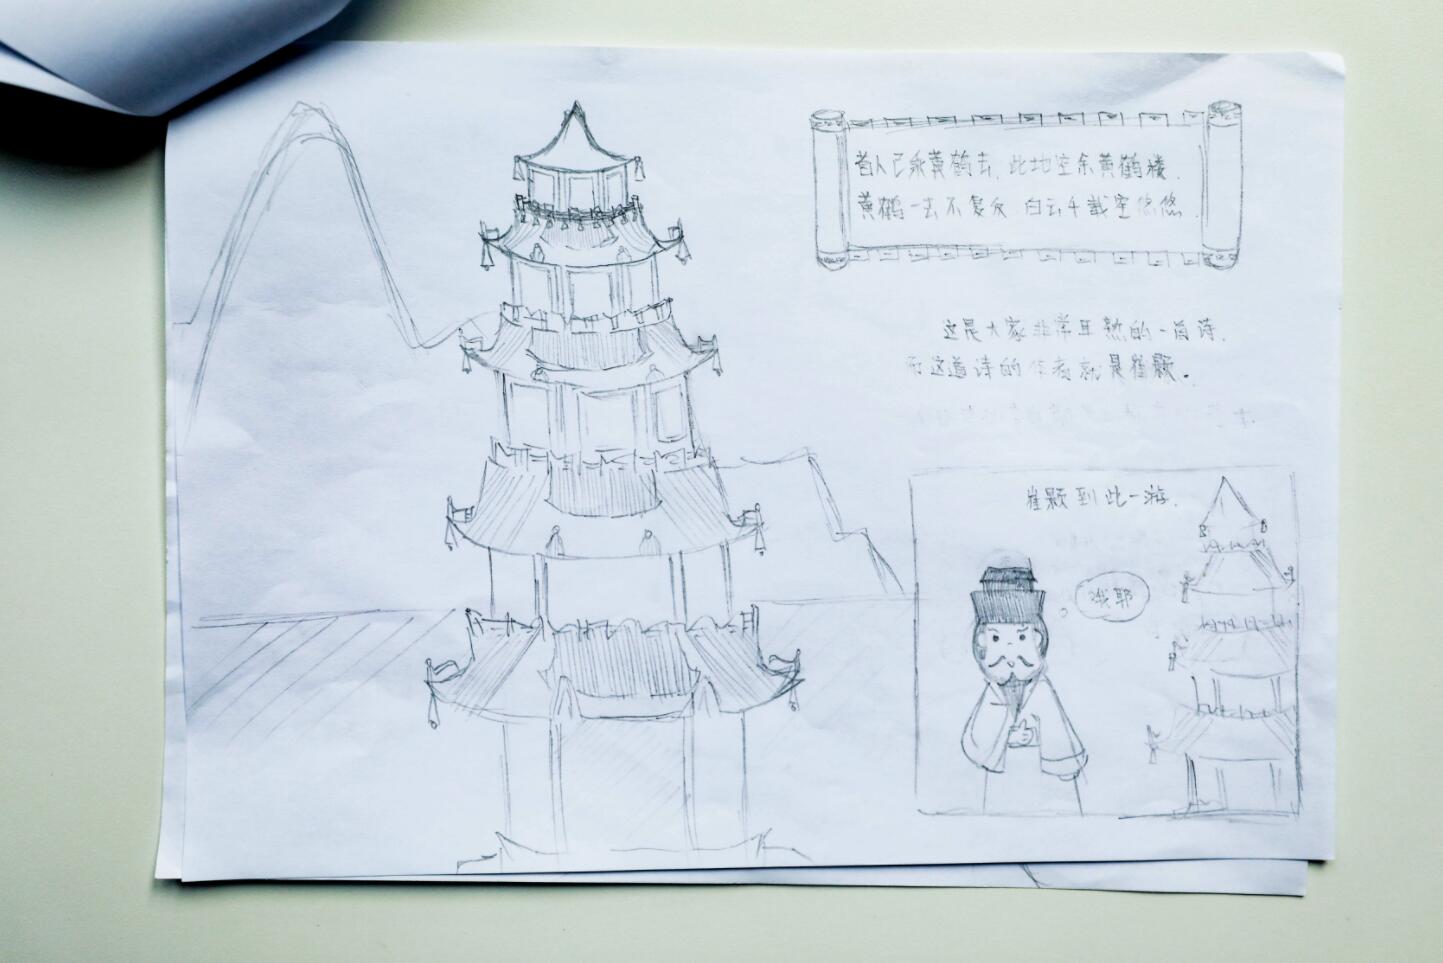 昔人已乘黄鹤去,此地空余黄鹤楼.
黄鹤一去不复返 白云千载空悠悠.
这是大家非常耳熟的一首诗.
而这道诗的作者就是崔颢.
崔颢到此一游.
哦耶